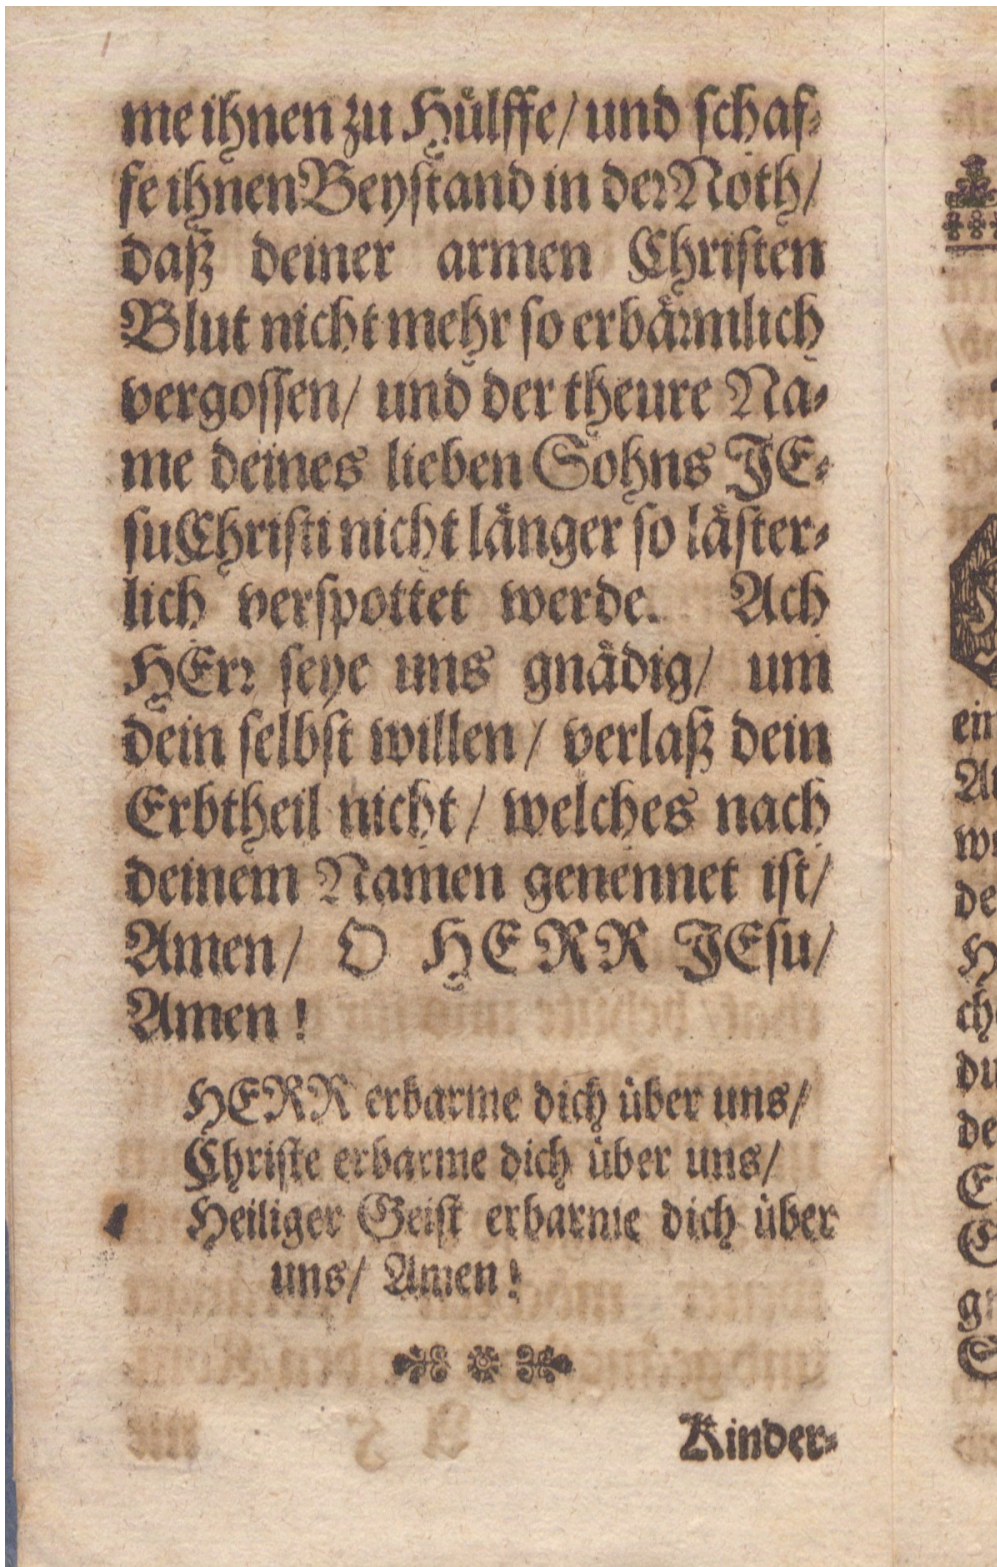 me ihnen zu Hülffe/ und schaf-
fe ihnen Beystand in der Noth/
daß deiner armen Christen
Blut nicht mehr so erbärmlich
vergossen/ und der theure Na-
me deines lieben Sohns JE-
su Christi nicht länger so läster-
lich verspottet werde. Ach
HErr seye uns gnädig/ um
dein selbst willen/ verlaß dein
Erbtheil nicht/ welches nach
deinem Namen genennet ist/
Amen/ O HERR JEsu/
Amen!
HERR erbarme dich über uns/
Christe erbarme dich über uns/
Heiliger Geist erbarme dich über
uns/ Amen!
Kinder-